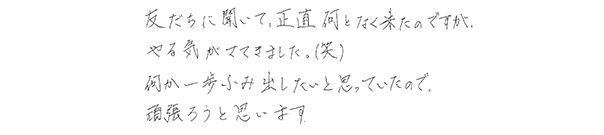 友だちに聞いて、正直何となく来たのですが、
やる気がでてきました。(笑)
何か一歩ふみ出したいと思っていたので、
頑張ろうと思います